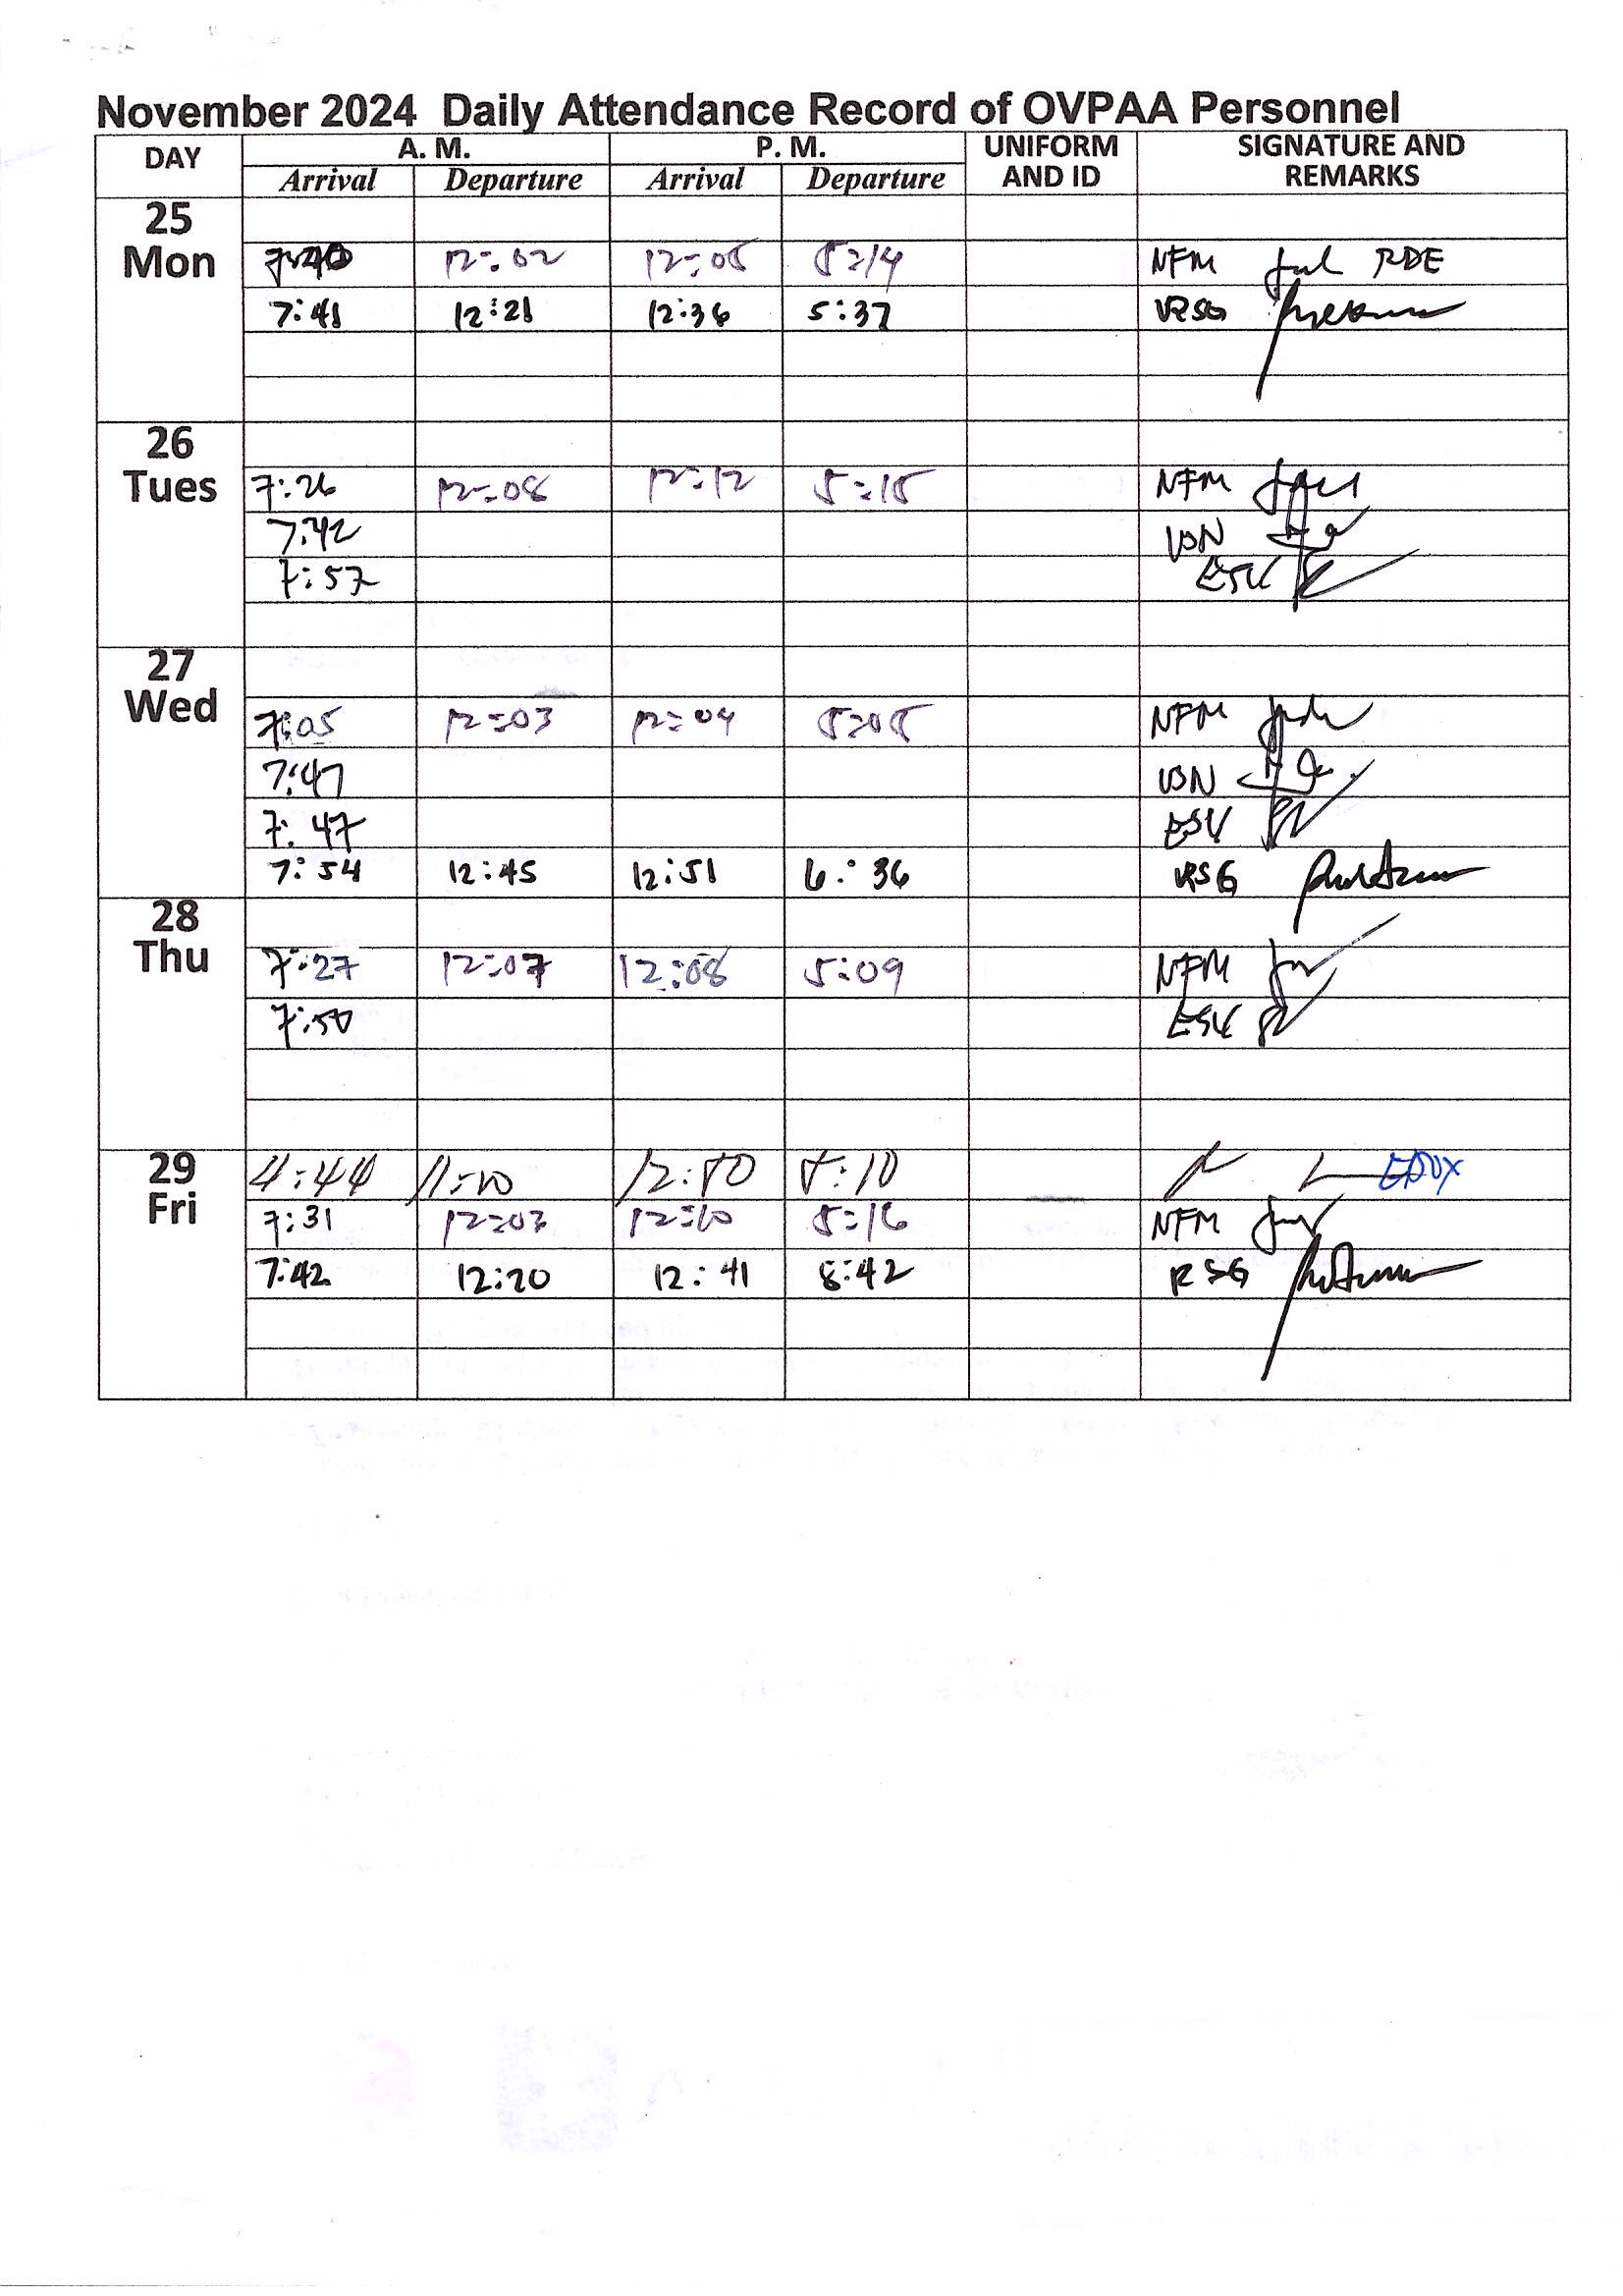 November 2024 Daily Attendance Record of OVPAA Personnel
DAY A. M. P. M. UNIFORM AND ID SIGNATURE AND REMARKS
Arrival Departure Arrival Departure
25 Mon
12:02 12:05 5:14 NFM RDE
7:41 12:21 12:36 5:37 RSG
26 Tues
7:26 12:08 12:12 5:15 NFM
7:42 VBN
7:57 ESV
27 Wed
7:05 12:03 12:04 5:05 NFM
7:47 VBN
7:47 ESV
7:54 12:45 12:51 6:36 RSG
28 Thu
7:27 12:07 12:08 5:09 NFM
7:50 ESV
29 Fri
4:44 11:10 12:50 5:10
7:31 12:03 12:10 5:16 NFM
7:42 12:20 12:41 8:42 RSG